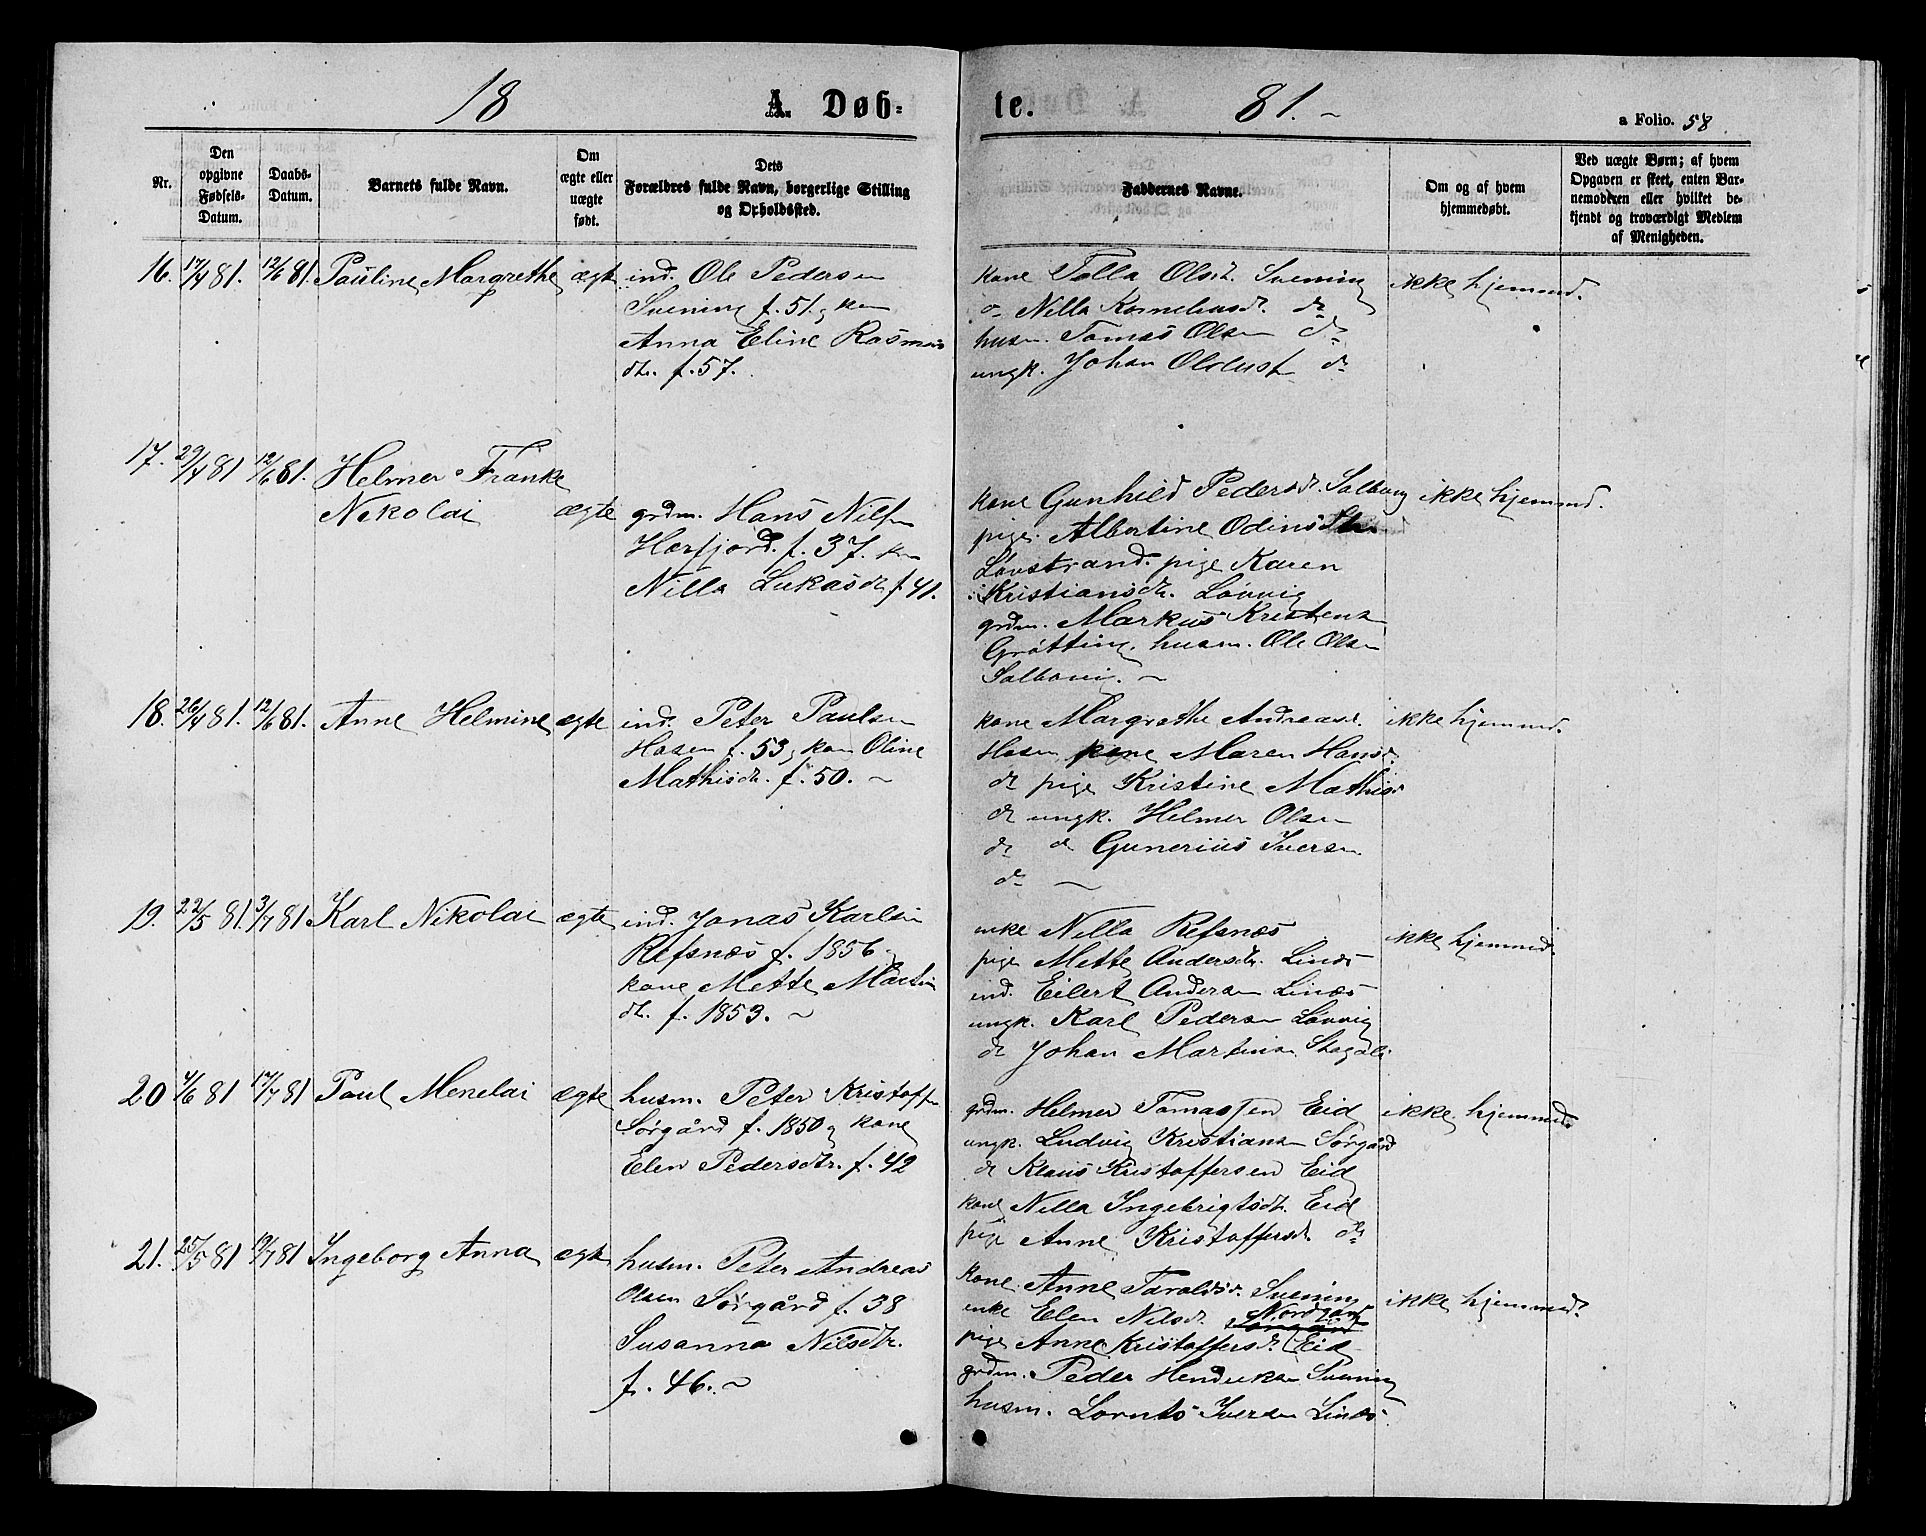 18 A. Døb= te. 81. a Folio. 58.
Nr.
Den opgivne Fødsels-Datum.
Daabs-Datum.
Barnets fulde Navn.
Om ægte eller uægte født.
Dets Forældres fulde Navn, borgerlige Stilling og Opholdssted.
Faddernes Navne.
Om og af hvem hjemmedøbt.
Ved uægte Børn; af hvem Opgaven er skeet, enten Barnemoderen eller hvilket bekjendt og troværdigt Medlem af Menigheden.
16. 17/4 81. 12/6 81. Pauline Margrethe ægte
ind. Ole Pedersen
Svening f. 51. og kon
Anna Eline Rasmus
dtr. f. 57.
kone Tolla Olsd. Svening
o Nilla Kornelius d. do
husm. Tomas Olsen do
ungk. Johan Oldus do
ikke hjemmed.
17. 29/4 81 12/6 81. Helmer Franke
Nikolai ægte
grdm. Hans Nilsen
Hærfjord. f. 37. kon
Nilla Lukasdt f. 41.
kone Gunhild Pedersdt. Salbuvig
pige. Albertine Odins
Løvstrand. pige Karen
Kristiansdtr. Løvvig
grdm. Markus Kristens
Grøtting. husm. Ole Olsen
Salbuvi.
ikke hjemmed.
18. 26/4 81. 12/6 81. Anne Helmine ægte
ind. Peter Paulsen
Hosen f. 53, kon Oline
Mathisdt. f. 50.
kone Margrethe Andreasd.
Hosen, kone Maren Hansd.
do pige Kristine Mathisd
do ungk. Helmer Olsen
do do Gunerius Iversen
do
ikke hjemmed.
19. 22/5 81. 3/7 81 Karl Nikolai ægte
ind. Jonas Karlsen
Refsnæs f. 1856
kone Mette Martin
dt. f. 1853.
enke Nilla Refsnæs
pige Mette Andersdtr. Linæs
ind. Eilert Andersen Linæs
ungk. Karl Pedersen Løvvig
do Johan Martinsen
ikke hjemmed.
20 4/6 81 17/7 81 Paul Menelai ægte
husm. Peter Kristoffe
Sørgård f. 1850 og kone
Elen Pedersdtr. f. 42
grdm. Helmer Tomassen Eid
ungk. Ludvig Kristiansen Sørgård
do Klaus Kristoffersen Eid
kone Nilla Ingebrigtsdt. Eid
pige Anne Kristoffersdt. do
ikke hjemmed.
21. 25/5 81 19/7 81 Ingeborg Anna ægte
husm. Peter Andreas
Olsen Sørgård f. 38
Susanna Nilsdtr.
f. 46.
kone. Anne Taraldsd. Svening
enke Elen Nilsdt. Nordgård
pige Anne Kristoffersdt Eid
grdm. Peder Hendriksen Svening
husm. Lornts Iversen Linæs
ikke hjemmed.